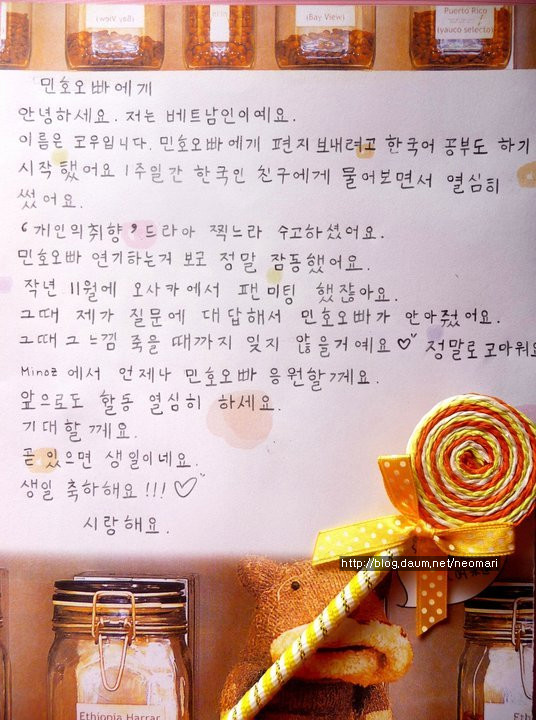 (Bay View)
(Bay View)
Puerto Rico
(yauco selecto)
민호오빠에게
안녕하세요. 저는 베트남인이예요.
이름은 코우입니다. 민호오빠에게 편지보내려고 한국어 공부도 하기
시작했어요 1주일간 한국인 친구에게 물어보면서 열심히
썼어요.
'개인의취향' 드라아 찍느라 수고하셨어요.
민호오빠 연기하는거 보고 정말 잠동했어요.
작년 11월에 오사카에서 팬미팅 했잖아요.
그때 제가 질문에 대답해서 민호오빠가 안아줬어요.
그때 그느낌 죽을 때까지 잊지 않을거예요♡ 정말로고마워요
Minoz에서 언제나 민호오빠 응원할께요.
앞으로도 활동 열심히 하세요.
기대할께요.
곧 있으면 생일이네요.
생일 축하해요!!!♡
시랑해요.
http://blog.daum.net/neomari
Ethiopia Harrar